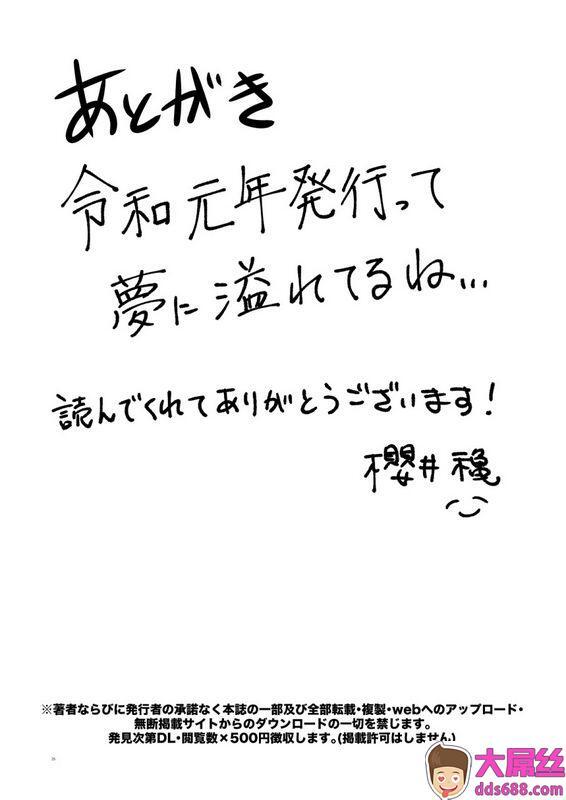 あとがき
令和元年発行って
夢に溢れてるね…
読んでくれてありがとうございます！
櫻井穐
※著者ならびに発行者の承諾なく本誌の一部及び全部転載・複製・webへのアップロード・
無断掲載サイトからのダウンロードの一切を禁じます。
発見次第DL・閲覧数×500円徴収します。(掲載許可はしません)
大屌丝
dds688.com